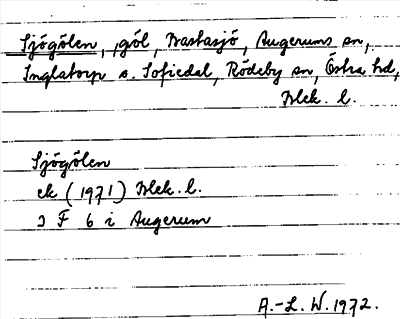 Sjögölen, ,göl, Brastasjö, Augerums sn,
Inglatorp o. Sofiedal, Rödeby sn, Östra hd,
Blek. l.
Sjögölen
ek (1971) Blek. l.
3 F 6 i Augerum
A.-L. W. 1972.